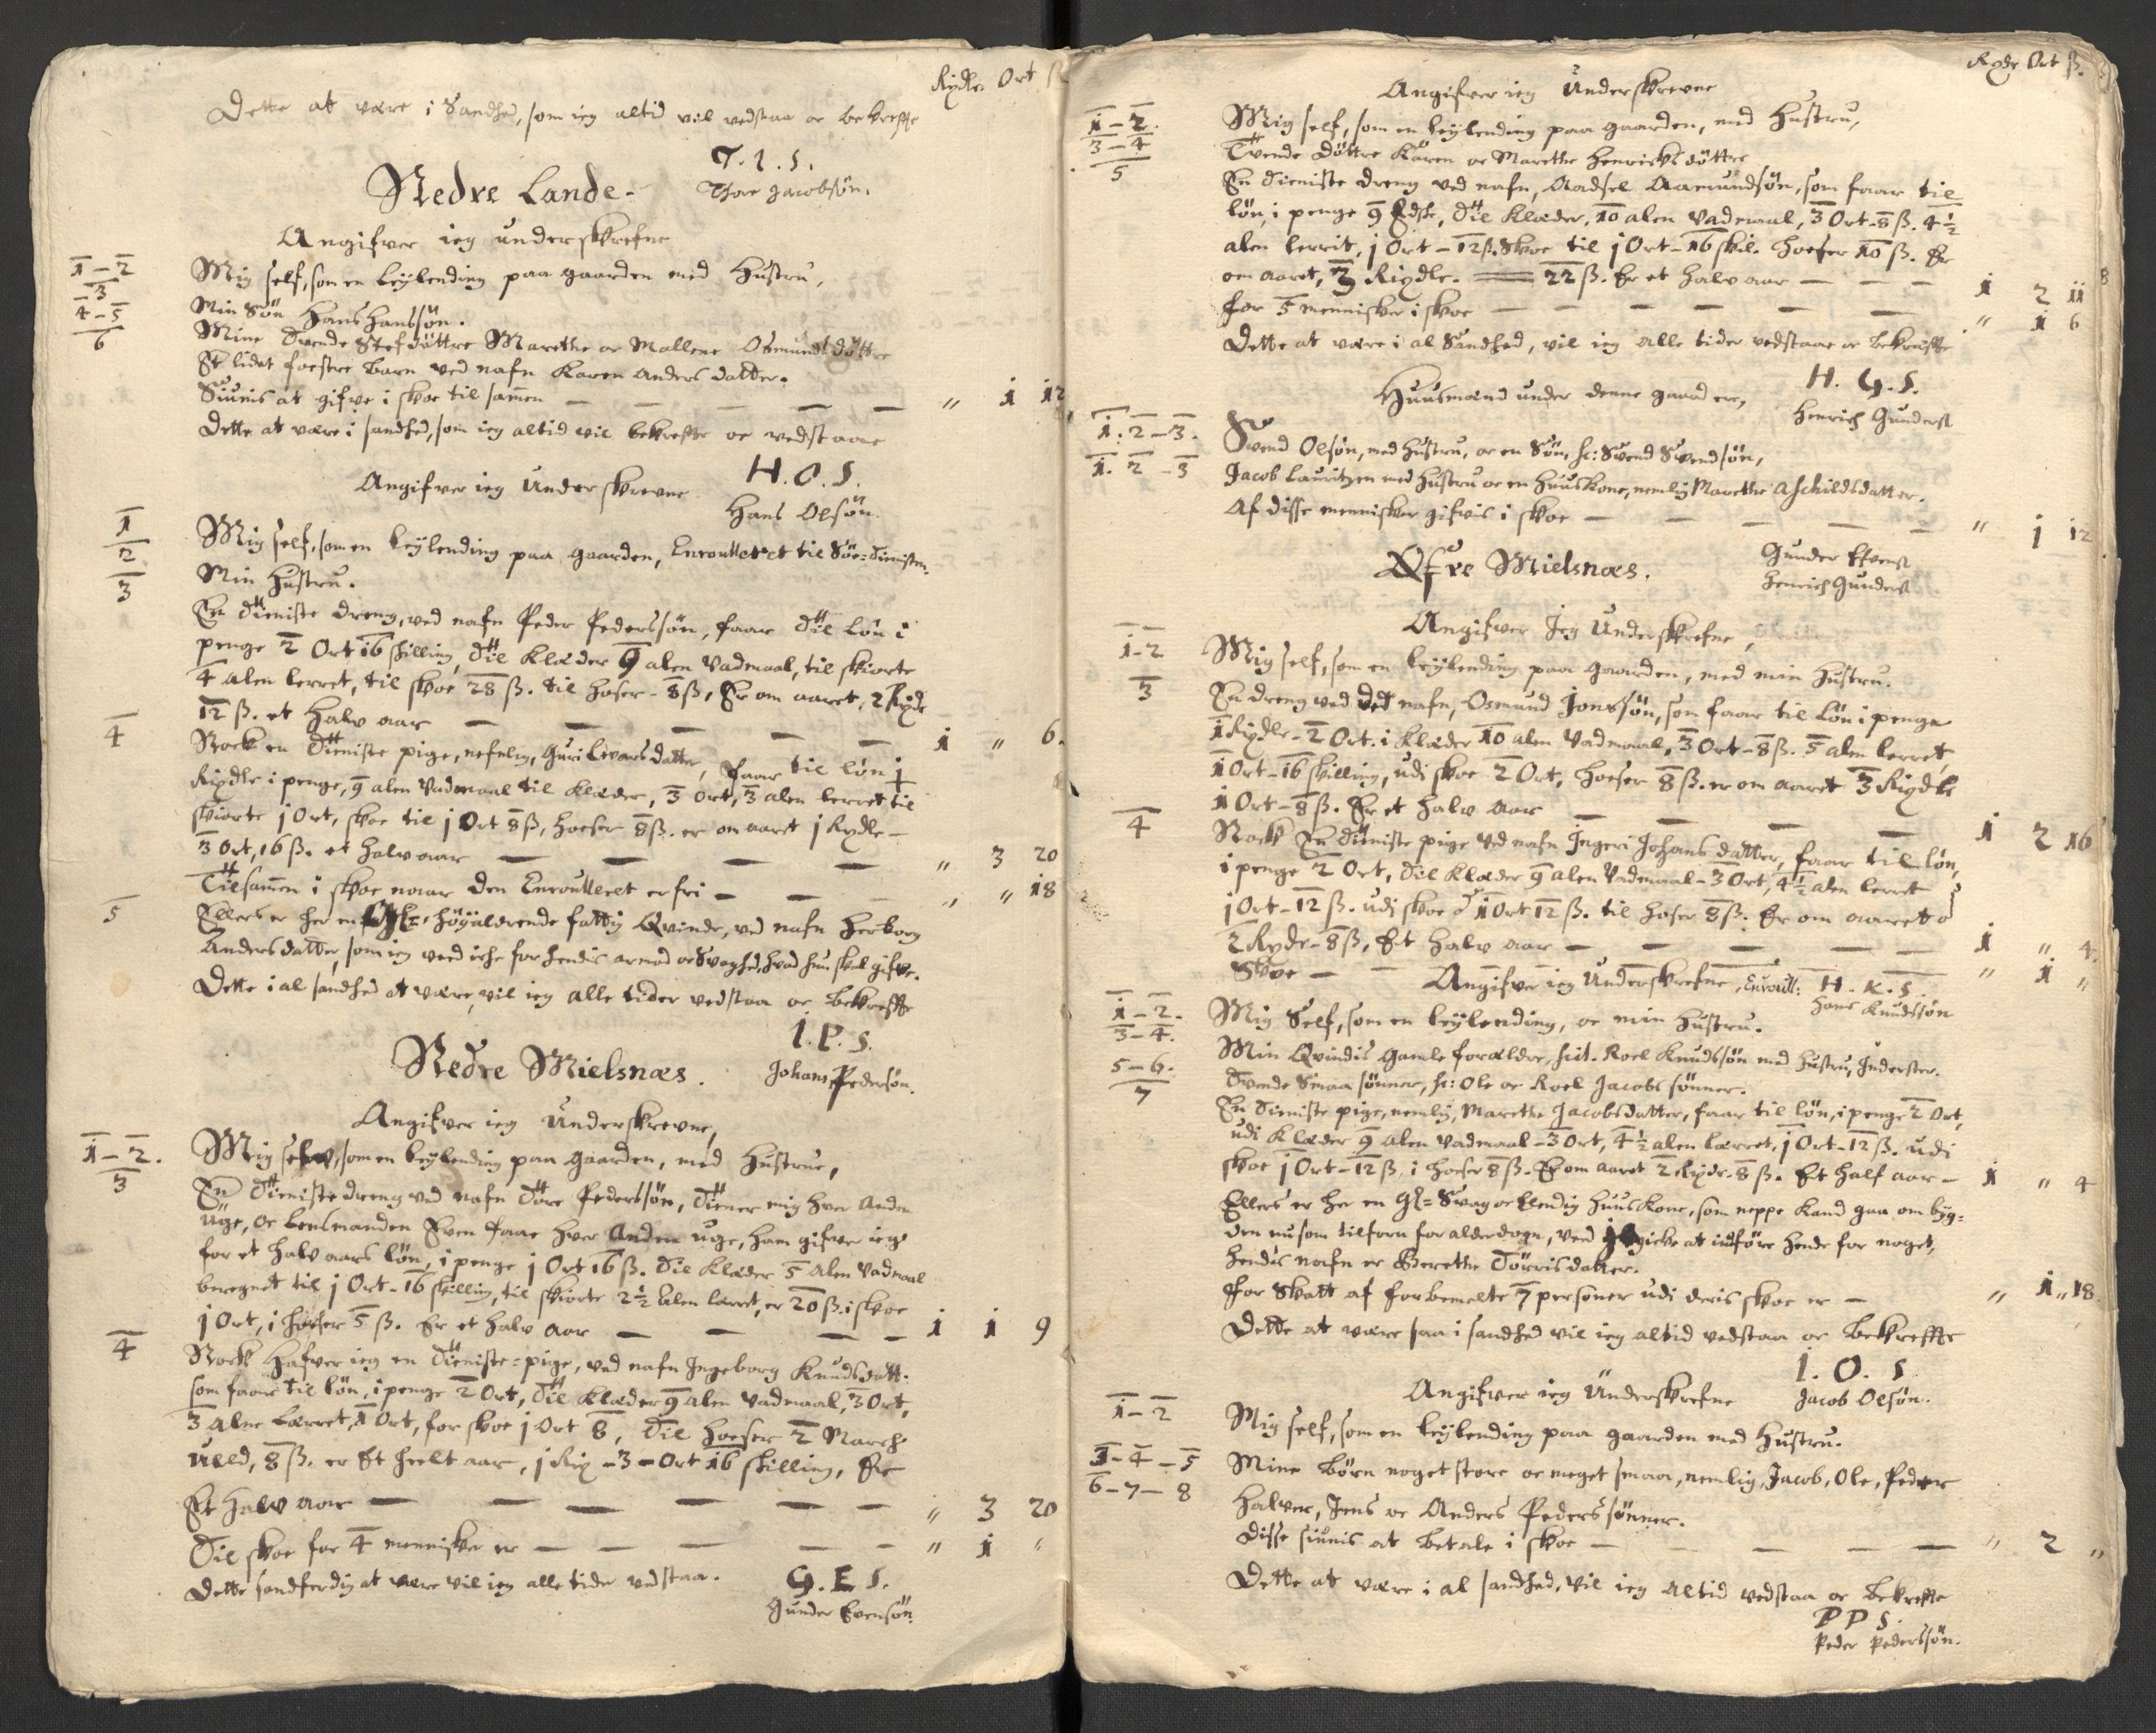 Rixdlr Ort ß
Dette at være i Sandhed, som ieg altid vil vedstaa oc bekreffte
T. I. S.
Thore Jacobsøn.
Nedre Lande-
Angifver ieg underskrefne
1-2 Mig self, som en leylending paa gaarden med Hustru,
-3 Min Søn Hans Hanssøn.
4-5 Mine Tvende Stefdøttre Marethe oc Mallene Osmundsdøttre
6 Et lidet foestre barn ved nafn Karen Anders datter.
Siunis at gifve i skoe til samen — — — — — " 1 12
Dette at være i sandhed, som ieg altid vil bekreffte oc vedstaae
H. O. S.
Angifver ieg Underskrevne
Hans Olsøn.
1 Mig self, som en leylending paa gaarden, Enroulleret til Søe-Tienisten.
2 Min Hustru.
3 En Tieniste dreng, ved nafn Peder Pederssøn, faar Til løn i
penge 2 Ort 16 skilling, Til Klæder 9 alen Vadmaal, til skiorte
4 alen lerret, til skoe 28 ß. til hoser - 8 ß, Er om aaret, 2 Rixdr
12 ß. et halv aar — — — — — 1 " 6.
4 Nock en Tieniste pige, nefnlig, Guri Livarsdatter, faar til løn 1
Rixdlr i penge, 9 alen Vadmaal til Klæder, 3 ort, 3 alen lerret til
skiorte 1 Ort, skoe til 1 Ort 8 ß, hoeser 8 ß. er om aaret 1 Rixdlr -
3 Ort, 16 ß. et halv aar — — — — " 3 20
Tilsamen i skoe naar den Enroulleret er fri — — — " " 18
5 Ellers er her en høyaldrende fattig Qvinde, ved nafn Herborg
Andersdatter, som ieg veed iche for hendis armod oc Svaghed, hvad hun skal gifve.
Dette i al sandhed at være, vil ieg alle tider vedstaa oc bekreffte
I. P. S.
Nedre Mielsnæs.
Johans Pedersøn.
Angifver ieg Underskrevne,
1-2. Mig selv, som en leylending paa gaarden, med Hustrue,
3 En Tieniste dreng ved nafn Tore Pederssøn, Tiener mig hver anden
Uge, oc lensmanden Even faae hver Anden uge, ham gifver ieg
for et halv aars løn, i penge 1 Ort 16 ß. Til Klæder 5 Alen Vadmaal
beregnet til 1 Ort - 16 skilling, til skiorte 2½ Alen lærret, er 20 ß. i skoe
1 Ort, i hoeser 5 ß. Er et halv aar — — — — 1 1 9
4 Nock hafver ieg en Tieniste-pige, ved nafn Ingeborg Knudsdatt:
som faaer til løn, i penge 2 Ort, Til Klæder 9 alen Vadmaal, 3 Ort,
3 Alne Lærret, 1 Ort, for skoe 1 Ort 8, Til hoeser 2 March
Uld, 8 ß. er Et heelt aar, 1 Rix - 3 - Ort 16 skilling, Er
Et halv aar — — — — — — " 3 20
Til skoe for 4 mennisker er — — — — — " 1 "
Dette sandferdig at være vil ieg alle tider vedstaa.
G. E. S.
Gunder Evensøn.
Rixdr Ort ß.
Angifver ieg Underskrevne
1-2. Mig self, som en leylending paa gaarden, med Hustru,
3-4 Tvende døttre Karen oc Marethe Henrichsdøttre
5 En Tieniste dreng ved nafn, Aadsel Aamundsøn, som faar til
løn, i penge 9 , Til Klæder, 10 alen Vadmaal, 3 Ort - 8 ß. 4½
alen lerrit, 1 Ort - 12 ß. Skoe til 1 Ort - 16 skil. hoeser 10 ß. Er
om aaret, 3 Rixdlr. — 22 ß. Er et halv aar — — — 1 2 11
for 5 mennisker i skoe — — — — — — " 1 6
Dette at være i al Sandhed, vil ieg alle tider vedstaae oc bekræfte
H. G. S.
Huusmænd under denne gaard ere,
Henrich Gunders
1. 2-3. Svend Olsøn, med Hustru, oc en Søn, sc: Svend Svendsøn,
1. 2-3 Jacob Lauritzen med Hustru oc en huuskone, nemlig Marethe Aschildsdatter.
Af disse mennisker gifvis i skoe — — — — — " 1 12
Gunder Efvens
Henrich Gunders
Øfre Mielsnæs.
Angifver Jeg Underskrefne,
1-2 Mig self, som en leylending paa gaarden, med min Hustru.
3 En dreng ved nafn, Osmund Jonssøn, som faar til løn i penge
1 Rixdlr - 2 Ort. i Klæder 10 alen Vadmaal, 3 Ort - 8 ß. 5 alen lerret,
1 Ort - 16 skilling, udi skoe 2 Ort, hoeser 8 ß. er om aaret 3 Rixdlr
1 Ort - 8 ß. Er et halv aar — — — — 1 2 16
4 Nock En Tieniste pige ved nafn Ingeri Johans datter, faar til løn,
i penge 2 Ort, Til Klæder 9 Alen Vadmaal - 3 Ort, 4½ alen lerret
1 Ort - 12 ß. udi skoe 1 Ort 12 ß. til hoser 8 ß. Er om aaret
2 Rixdr - 8 ß, Et halv aar — — — — — 1 " 4.
Skoe — — — — " 1 "
Angifver ieg Underskrefne, Enroull: H. K. S.
Hans Knudssøn
1-2. Mig Self, som en leylending, oc min Hustru.
3-4. Min Qvindis Gamle forældre, scil. Roel Knudsøn med Hustru, Inderster.
5-6. Tvende Smaa sønner, sc: Ole oc Roel Jacobs sønner.
7 En Tieniste pige, nemlig, Marethe Jacobsdatter, faar til løn, i penge 2 Ort,
udi Klæder 9 Alen Vadmaal - 3 Ort, 4½ alen lærret, 1 Ort - 12 ß. udi
skoe 1 Ort - 12 ß, i hoser 8 ß. Er om aaret 2 Rixdr. 8 ß. Et half aar — 1 " 4
Ellers er her en Gl= Svag oc Elendig huuskone, som neppe kand gaa om byg=
den nu som tilforn for alderdogn, veed icke at indføre hende for noget,
hendis nafn er Berethe Tørrisdatter.
For Skatt af forbemelte 7 personer udi deris skoe er — " 1 " 18
Dette at være saa i sandhed vil ieg altid vedstaa oc bekreffte
I. O. S
Angifver ieg Underskrefne
Jacob Olsøn.
1-2 Mig self, som en leylending paa gaarden med Hustru.
3-4-5 Mine børn noget store oc meget smaa, nemlig, Jacob, Ole, Peder
6-7-8 Halver, Jens oc Anders Peders sønner.
Disse siunis at betale i skoe — — — — " 2 "
Dette at være i al sandhed, vil ieg altid vedstaa oc bekreffte
P P S
Peder Pederssøn.